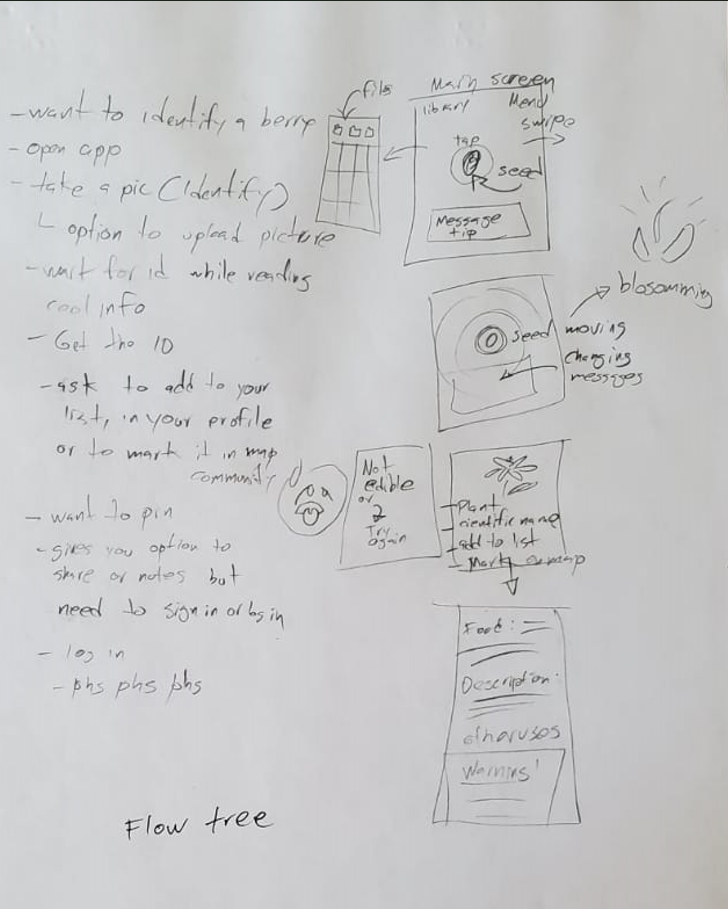 - want to identify a berry
- open app
- take a pic (Identify)
└ option to upload picture
- wait for id while reading
cool info
- Get the ID
- ask to add to your
list, in your profile
or to mark it in map
community
- want to pin
- gives you option to
share or notes but
need to sign in or log in
- log in
- phs phs phs
Flow tree
fils
Main screen
library Menu
swipe
tap
seed
Message
tip
blosomming
seed moving
changing
messages
Not
edible
or
2
Try
again
- Plant
- cientific name
- add to list
- Mark on map
Food:
Description:
other uses
Warnins!